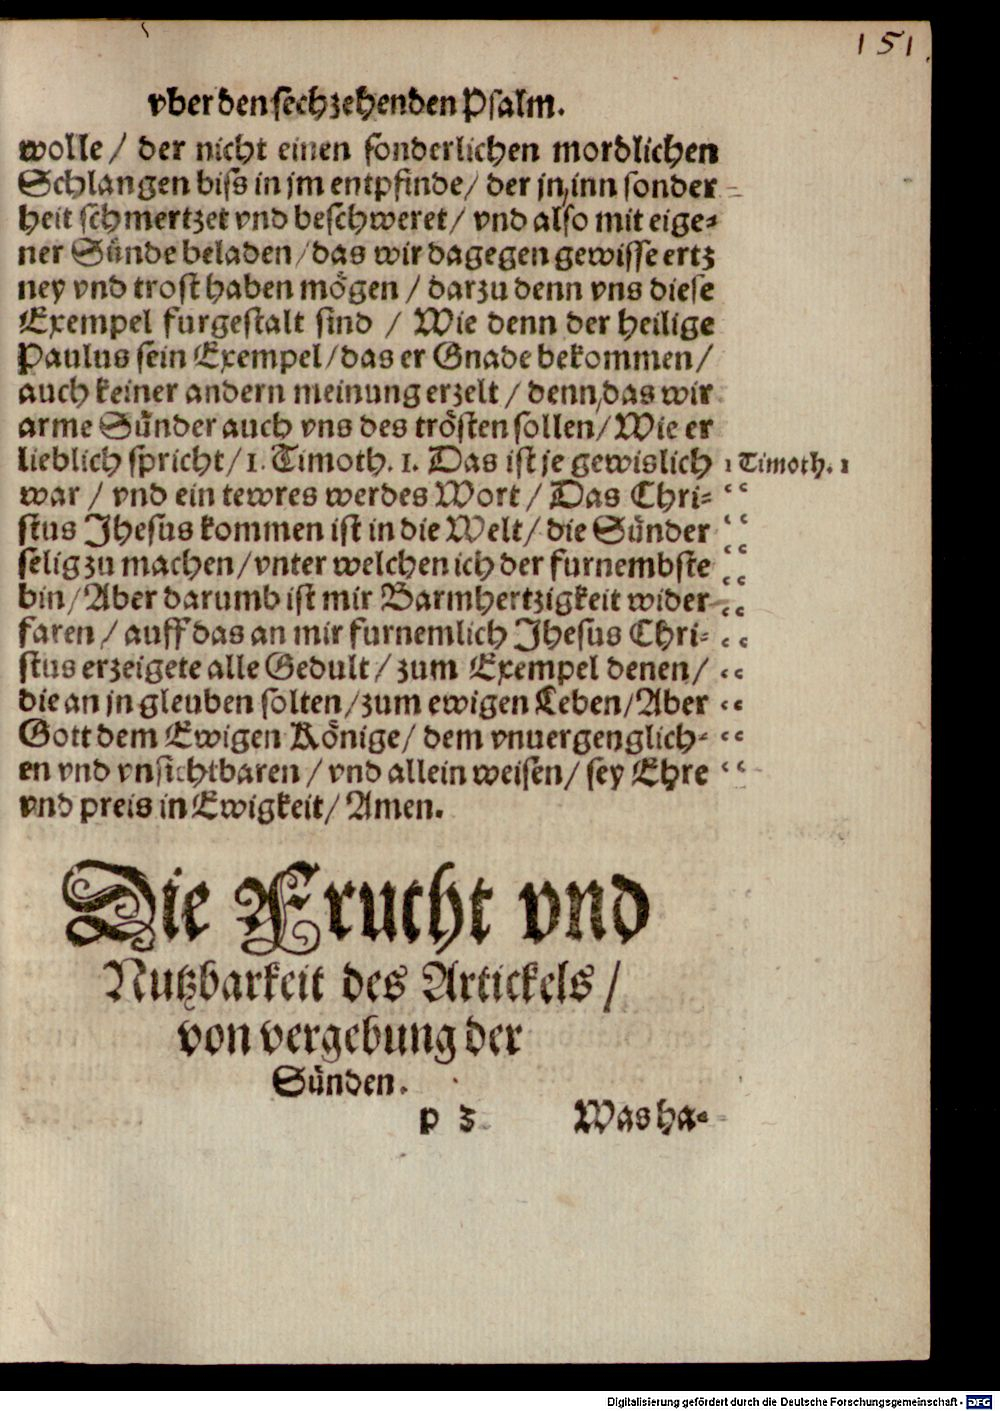 151
vber den sechzehenden Psalm.
wolle / der nicht einen sonderlichen mordlichen
Schlangen biſs in jm entpfinde / der jn, inn sonder
heit schmertzet vnd beschweret / vnd also mit eige-
ner Sünde beladen / das wir dagegen gewisse ertz
ney vnd trost haben mögen / darzu denn vns diese
Exempel furgestalt sind / Wie denn der heilige
Paulus sein Exempel / das er Gnade bekommen /
auch keiner andern meinung erzelt / denn, das wir
arme Sünder auch vns des trösten sollen / Wie er
lieblich spricht / 1. Timoth. 1. Das ist je gewislich
1 Timoth. 1
war / vnd ein tewres werdes Wort / Das Chri-
stus Jhesus kommen ist in die Welt / die Sünder
selig zu machen / vnter welchen ich der furnembste
bin / Aber darumb ist mir Barmhertzigkeit wider-
faren / auff das an mir furnemlich Jhesus Chri-
stus erzeigete alle Gedult / zum Exempel denen /
die an jn gleuben solten / zum ewigen Leben / Aber
Gott dem Ewigen Könige / dem vnuergenglich-
en vnd vnsichtbaren / vnd allein weisen / sey Ehre
vnd preis in Ewigkeit / Amen.
Die Frucht vnd
Nutzbarkeit des Artickels /
von vergebung der
Sünden.
p 3 Was ha-
Digitalisierung gefördert durch die Deutsche Forschungsgemeinschaft - DFG